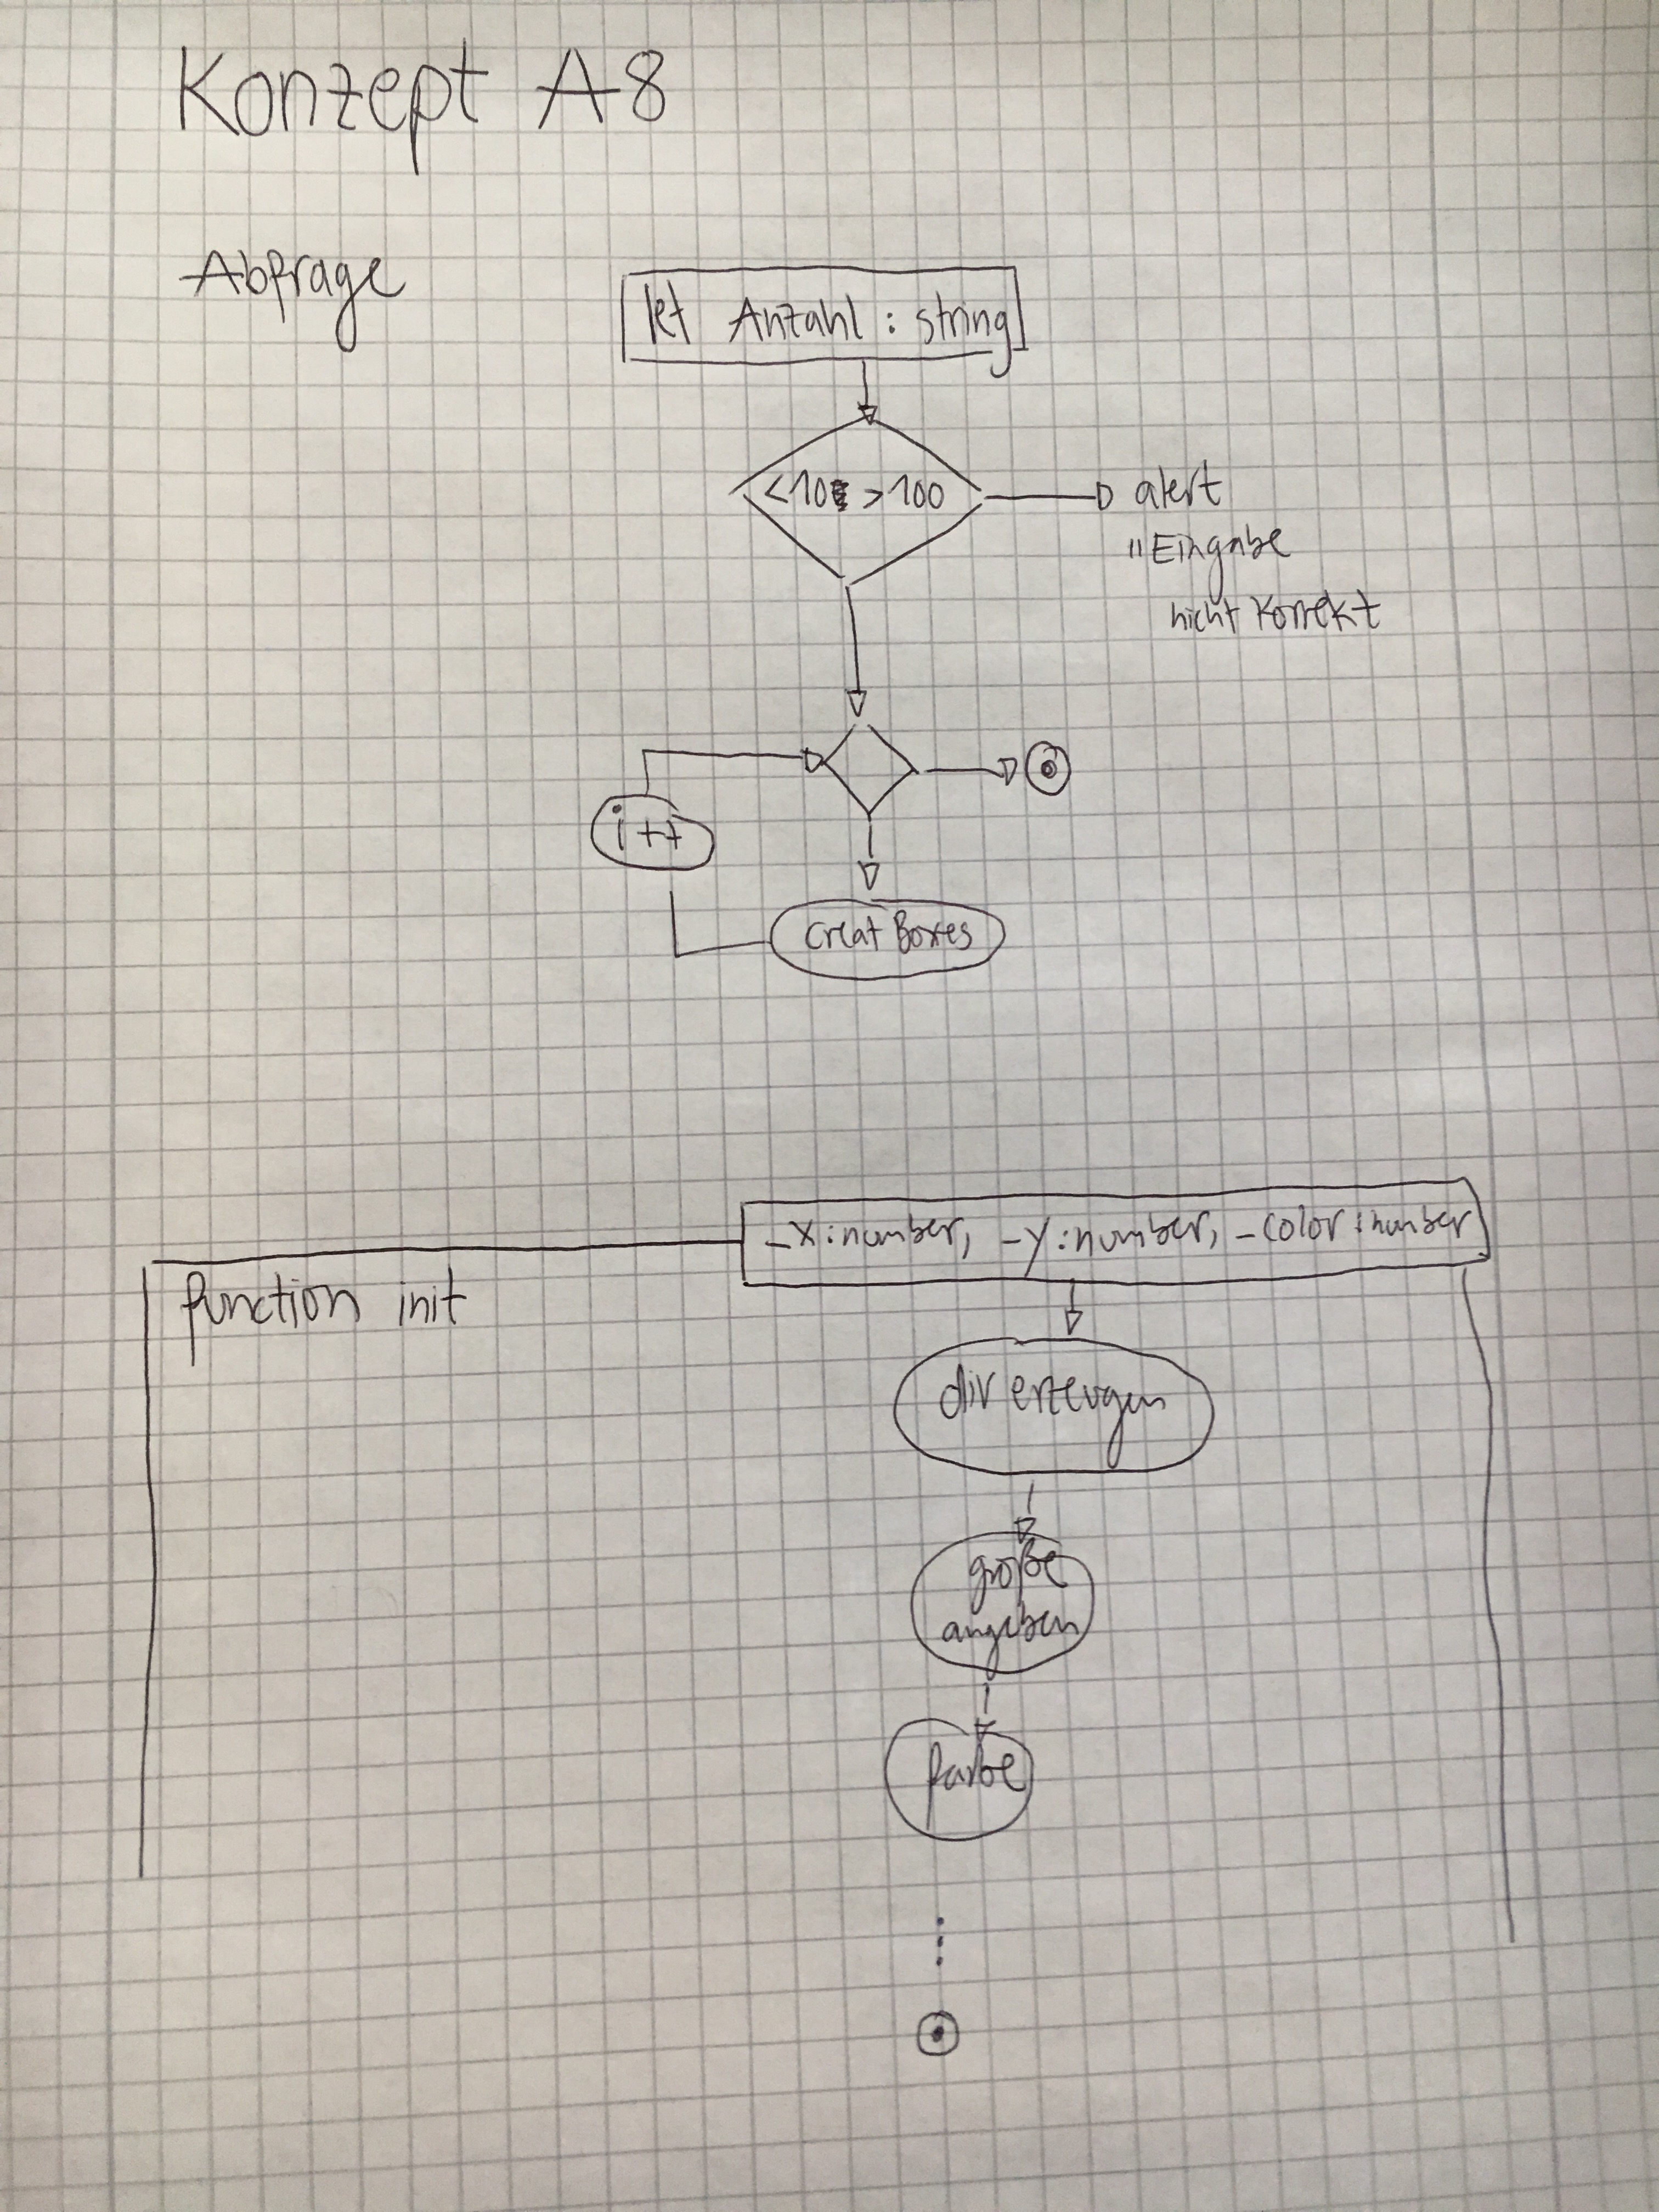 Konzept A8
Abfrage
let Anzahl : string
<10 >100
alert
"Eingabe
nicht korrekt
i++
creat Boxes
_x:number, _y:number, _color:number
function init
div erzeugen
große
angeben
farbe